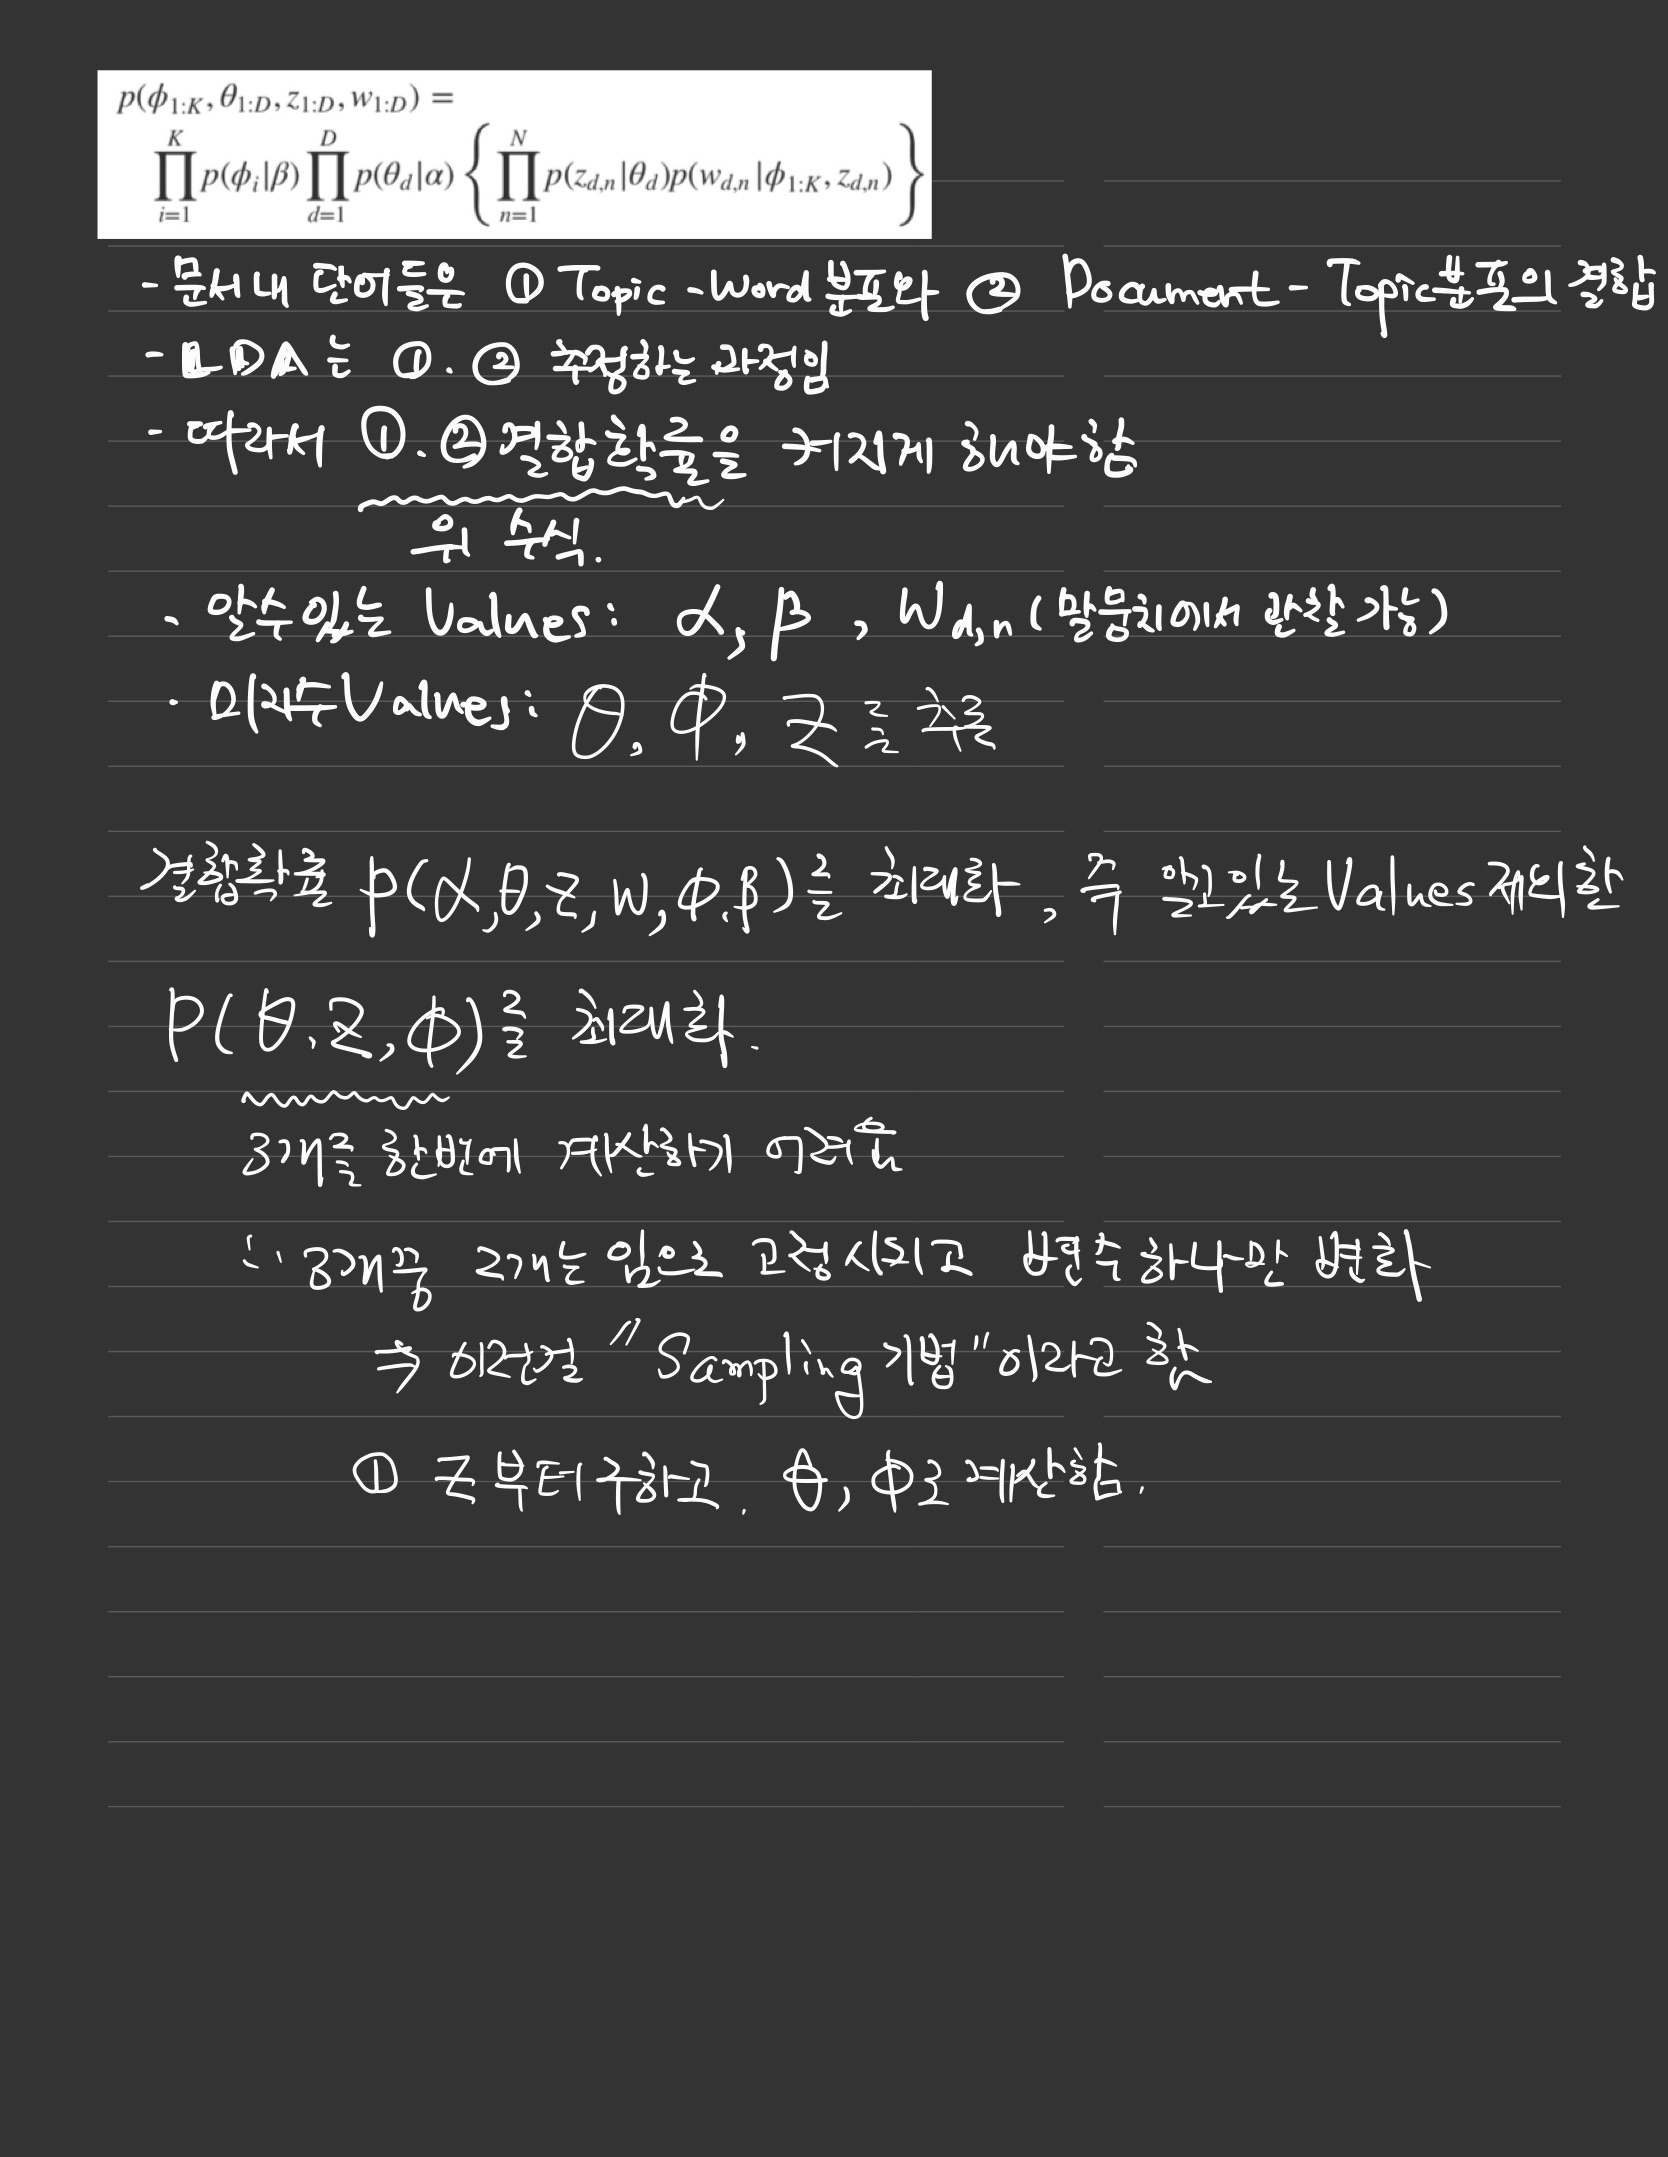 p(ϕ1:K, θ1:D, z1:D, w1:D) =
∏_{i=1}^{K} p(ϕi|β) ∏_{d=1}^{D} p(θd|α) { ∏_{n=1}^{N} p(zd,n|θd)p(wd,n|ϕ1:K, zd,n) }
- 문서내 단어들은 ① Topic-Word 분포와 ② Document-Topic분포의 결합
- LDA는 ①.② 추정하는 과정임
- 따라서 ①.② 결합확률을 커지게 해야함
위 수식.
- 알수있는 Values: α, β, Wd,n (말뭉치에서 관찰 가능)
· 미지수 Values: θ, ϕ, z를 추출
결합확률 p(α,θ,z,w,ϕ,β)를 최대화, 즉 알고있는 Values 제외한
P(θ,z,ϕ)를 최대화.
3개를 한번에 계산하기 어려움
∵ 3개중 2개는 임으로 고정시키고 변수하나만 변화
⇒ 이런걸 "Sampling 기법"이라고 함
① z부터 구하고. θ, ϕ로 계산함.